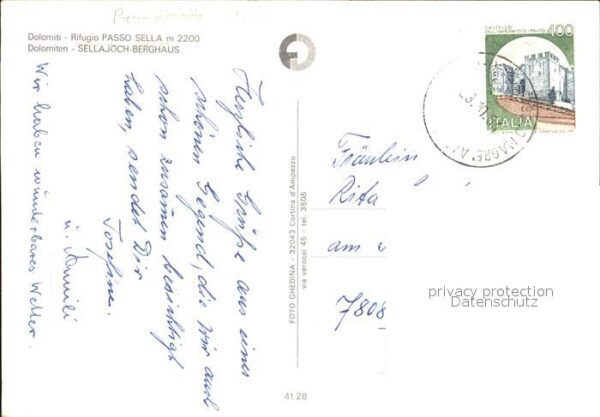 Dolomiti - Rifugio PASSO SELLA m 2200
Dolomiten - SELLAJOCH-BERGHAUS
Herzliche Grüße aus einer
schönen Gegend, die wir auch
schon zusammen besichtigt
haben, sendet Dir
Josefine.
u. Familie
Wir haben wunderbares Wetter.
FOTO GHEDINA - 32043 Cortina d'Ampezzo
via verocai 45 - tel. 3505
41.28
CASTELLO
DELL'IMPERATORE - PRATO
400
ITALIA
Fräulein
Rita
am
7808
privacy protection
Datenschutz